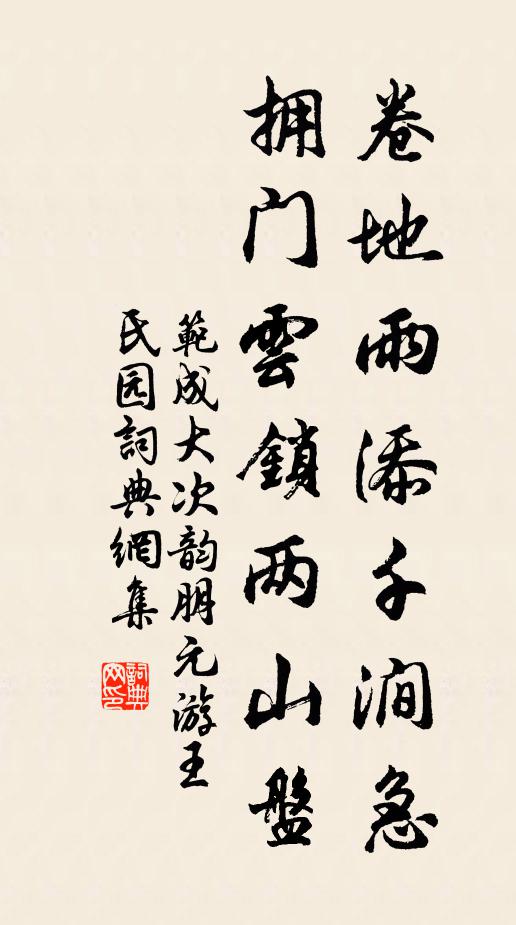 卷地雨添千澗急
拥门雲鎖两山盤
範成大次韵朋元游王
民园詞典網集
詞典
网印